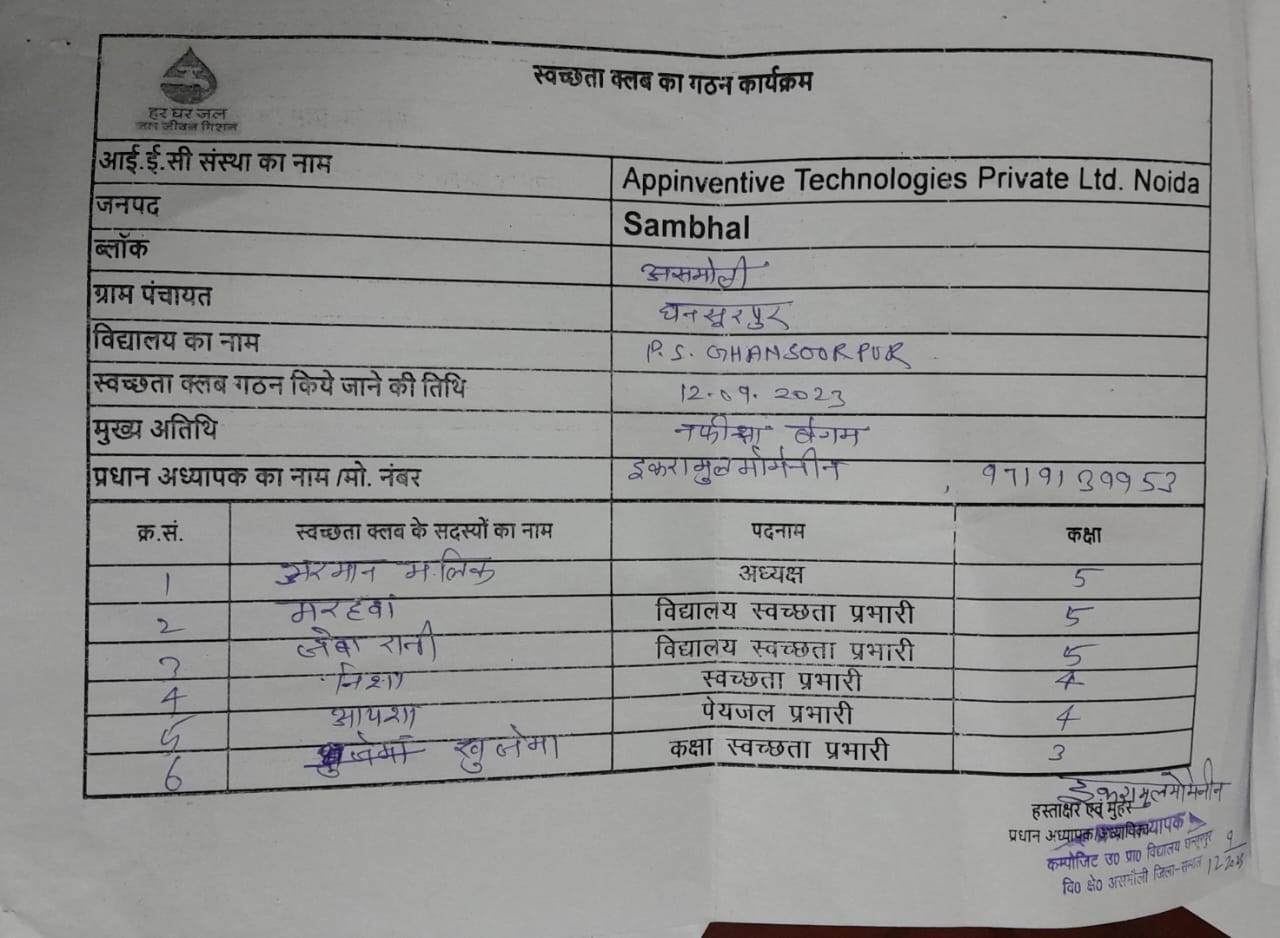 हर घर जल
जल जीवन मिशन
स्वच्छता क्लब का गठन कार्यक्रम
आई.ई.सी संस्था का नाम Appinventive Technologies Private Ltd. Noida
जनपद Sambhal
ब्लॉक असमोली
ग्राम पंचायत घनसूरपुर
विद्यालय का नाम P.S. GHANSOORPUR
स्वच्छता क्लब गठन किये जाने की तिथि 12.09.2023
मुख्य अतिथि नफीसा बेगम
प्रधान अध्यापक का नाम /मो. नंबर इकरामुलमोमेनीन , 9719139953
क्र.सं. स्वच्छता क्लब के सदस्यों का नाम पदनाम कक्षा
1 अरमान मलिक अध्यक्ष 5
2 मरहवा विद्यालय स्वच्छता प्रभारी 5
3 जेबा रानी विद्यालय स्वच्छता प्रभारी 5
4 निशा स्वच्छता प्रभारी 4
5 आयशा पेयजल प्रभारी 4
6 खुजेमा कक्षा स्वच्छता प्रभारी 3
इकरामुलमोमेनीन
हस्ताक्षर एवं मुहर
प्रधान अध्यापक/
कम्पोजिट उ0 प्रा0 विद्यालय
वि0 क्षे0 असमौली जिला-सम्भल